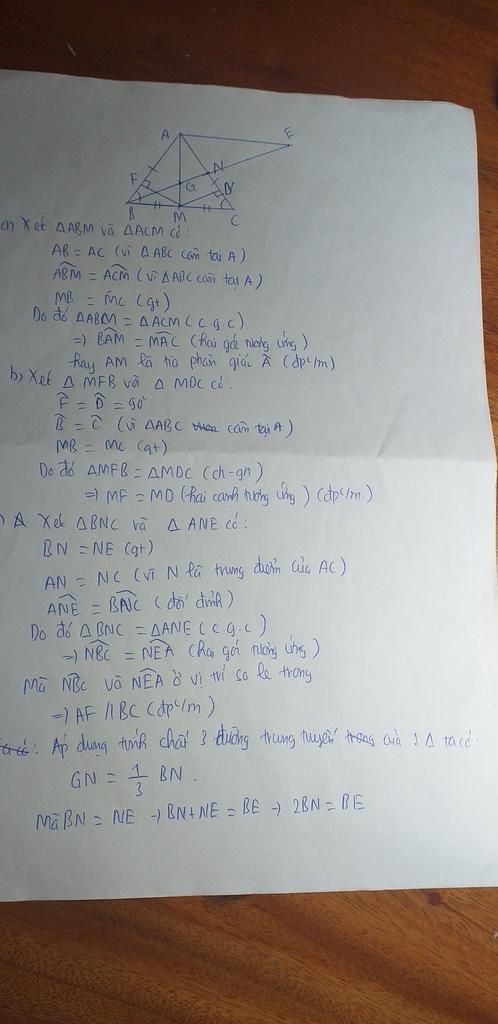 A
E
F
N
G
D
B
M
C
a) Xét ΔABM và ΔACM có:
AB = AC (vì ΔABC cân tại A)
ABM̂ = ACM̂ (vì ΔABC cân tại A)
MB = MC (gt)
Do đó ΔABM = ΔACM (c.g.c)
=> BAM̂ = MAĈ (hai góc tương ứng)
hay AM là tia phân giác Â (đpc/m)
b) Xét Δ MFB và Δ MDC có:
F̂ = D̂ = 90°
B̂ = Ĉ (vì ΔABC cân tại A)
MB = MC (gt)
Do đó ΔMFB = ΔMDC (ch-gn)
=> MF = MD (hai cạnh tương ứng) (đpc/m)
) A Xét ΔBNC và Δ ANE có:
BN = NE (gt)
AN = NC (vì N là trung điểm của AC)
ANÊ = BNĈ (đối đỉnh)
Do đó ΔBNC = ΔANE (c.g.c)
=> NBĈ = NEÂ (hai góc tương ứng)
Mà NBĈ và NEÂ ở vị trí so le trong
=> AF // BC (đpc/m)
Ta có: Áp dụng tính chất 3 đường trung tuyến trong của 1 Δ ta có:
GN = 1/3 BN.
Mà BN = NE → BN + NE = BE → 2BN = BE